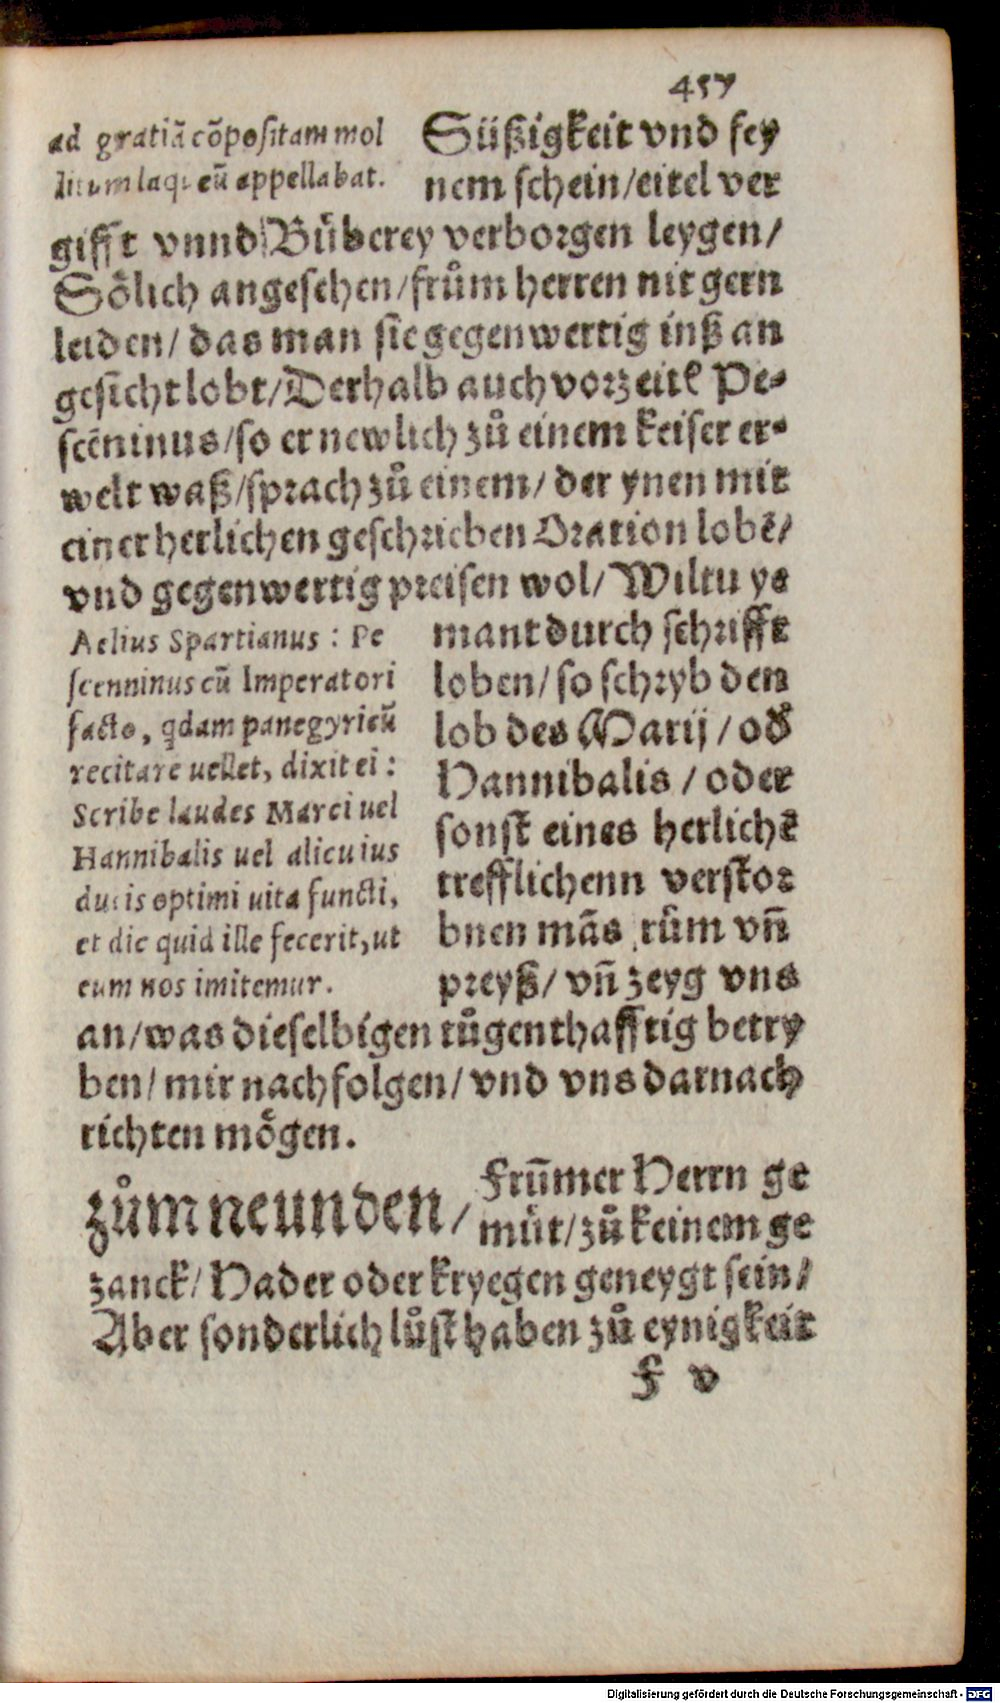 457
ad gratiã cõpositam mol
litum laqueũ appellabat.
Süßigkeit vnd sey
nem schein/eitel ver
gifft vnnd Bůberey verborgen leygen/
Sõlich angesehen/frům herren nit gern
leiden/ das man sie gegenwertig inß an
gesicht lobt/Derhalb auch vorzeitẽ Pe-
scẽninus/so er newlich zů einem keiser er-
welt waß/sprach zů einem/ der ynen mit
einer herlichen geschrieben Oration lobẽ/
vnd gegenwertig preisen wol/ Wiltu ye
Aelius Spartianus : Pe
scenninus cũ Imperatori
facto, qdam panegyricũ
recitare uellet, dixit ei :
Scribe laudes Marci uel
Hannibalis uel alicuius
ducis optimi uita functi,
et dic quid ille fecerit, ut
eum nos imitemur.
mant durch schrifft
loben/ so schryb den
lob des Marij / od
Hannibalis / oder
sonst eines herlichẽ
trefflichenn verstor
bnen mãs rům vñ
preyß/ vñ zeyg vns
an/was dieselbigen tůgenthafftig betry
ben/ mir nachfolgen/ vnd vns darnach
richten mõgen.
zům neunden/ Frũmer Herrn ge
můt/zů keinem ge
zanck/ Hader oder kryegen geneygt sein/
Aber sonderlich lůst haben zů eynigkeit
F v
Digitalisierung gefördert durch die Deutsche Forschungsgemeinschaft - DFG